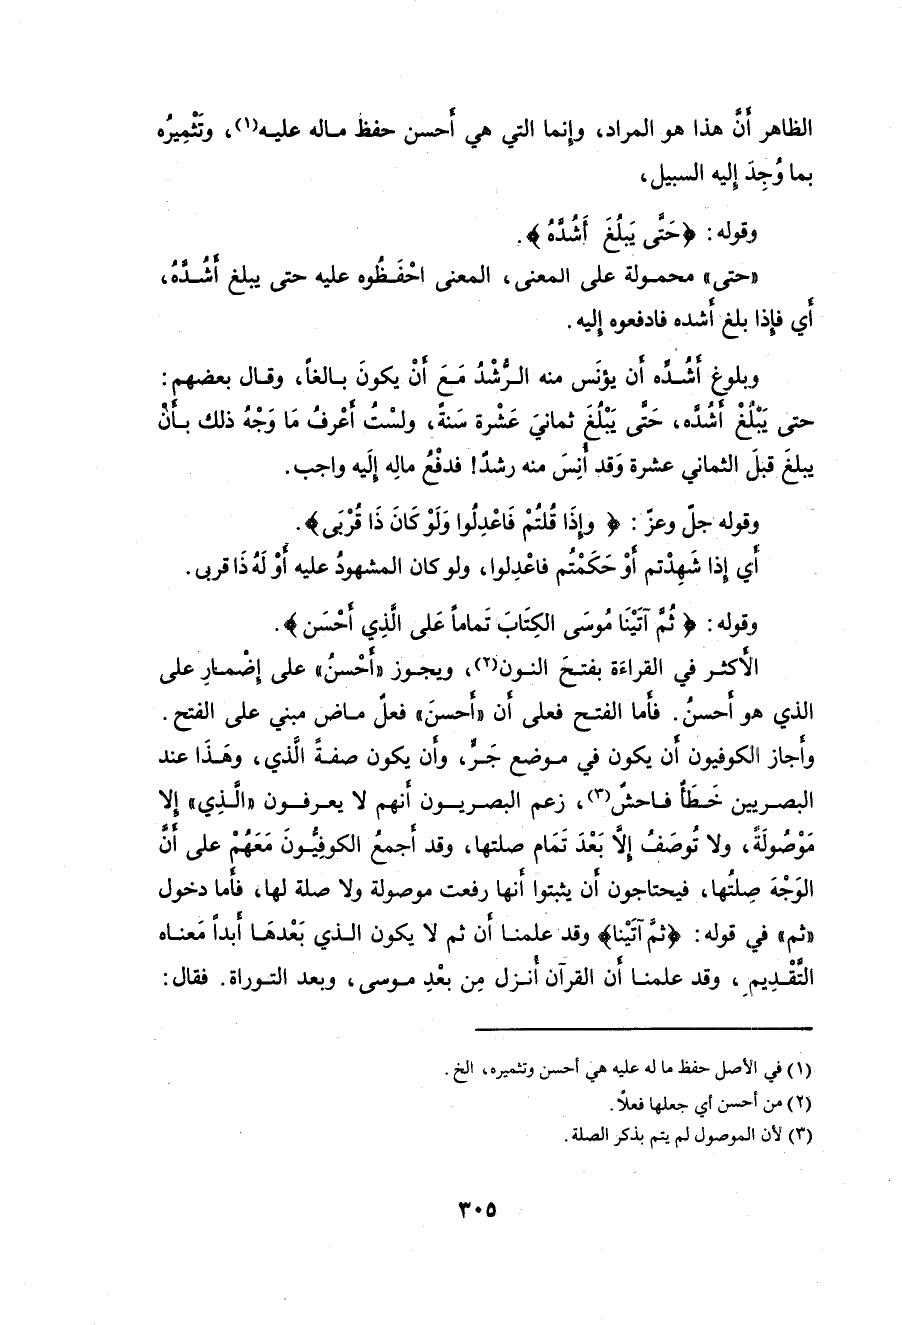 الظاهر أَنَّ هذا هو المراد، وإنما التي هي أَحسن حفظ مـاله عليـه(١)، وتَثْمِيرُه
بما وُجِدَ إليه السبيل،
وقوله: ﴿حَتَّى يَبْلُغَ أَشُدَّهُ﴾.
«حتى» محمـولة على المعنى، المعنى احْفَـظُوه عليه حتى يبلغ أَشُـدَّهُ،
أَي فإذا بلغ أَشده فادفعوه إليه.
وبلوغ أَشُـدَّه أن يؤنَس منه الـرُّشْدُ مَـعَ أَنْ يكونَ بـالغاً، وقـال بعضهم:
حتى يَبْلُغْ أَشُدَّه، حَتَّى يَبْلُغَ ثمانيَ عَشْرة سَنةً، ولسْتُ أَعْرفُ مَا وَجْهُ ذلك بـأَنْ
يبلغَ قبلَ الثماني عشرة وَقد أُنِسَ منه رشدٌ! فدفْعُ مالِه إلَيه واجب.
وقوله جلّ وعزّ: ﴿وإذَا قُلتُمْ فَاعْدِلُوا وَلَوْ كَانَ ذَا قُرْبَى﴾.
أَي إذا شَهِدْتم أَوْ حَكَمْتُم فاعْدِلوا، ولو كان المشهودُ عليه أَوْ لَهُ ذَا قربى.
وقوله: ﴿ثُمَّ آتَيْنَا مُوسَى الكِتَابَ تَماماً عَلى الَّذِي أَحْسَن﴾.
الأَكثـر في القراءَة بفتـحَ النـون(٢)، ويجـوز «أَحْسنُ» على إضْمـارِ على
الذي هو أَحسنُ. فأَما الفتـح فعلى أَن «أَحسنَ» فعلٌ مـاض مبني على الفتح.
وأَجاز الكوفيون أَن يكون في مـوضع جَـرٍّ، وأَن يكون صفـةً الَّذي، وهَـذَا عند
البصريين خَـطَأٌ فـاحشٌ(٣)، زعم البصريـون أَنهم لا يعـرفـون «الَّـذِي» إلا
مَوْصُولَةً، ولا تُوصَفُ إلاَّ بَعْدَ تَمَام صلتها، وقد أَجمعُ الكوفِيُّـونَ مَعَهُمْ على أَنَّ
الوَجْهَ صِلتُها، فيحتاجون أَن يثبتوا أَنها رفعت موصولة ولا صلة لها، فأَما دخول
«ثم» في قوله: ﴿ثمَّ آتَيْنا﴾ وقد علمنـا أَن ثم لا يكون الـذي بَعْدهَـا أَبداً مَعنـاه
التَّقْـدِيم، وقد علمنـا أَن القرآن أُنـزل مِن بعْدِ مـوسى، وبعد التـوراة. فقال:
(١) في الأصل حفظ ما له عليه هي أحسن وتثميره، الخ.
(٢) من أحسن أي جعلها فعلًا.
(٣) لأن الموصول لم يتم بذكر الصلة.
٣٠٥